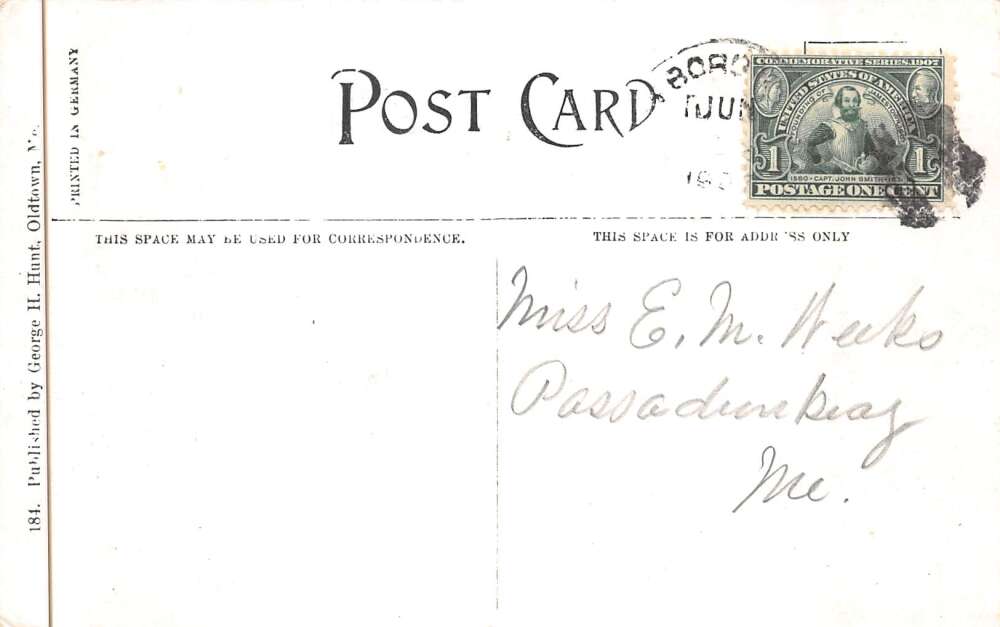 PRINTED IN GERMANY
184. Published by George H. Hunt, Oldtown, Me.
POST CARD
BORO
JUN
COMMEMORATIVE SERIES, 1907
UNITED STATES OF AMERICA
FOUNDING OF JAMESTOWN
1580 CAPT. JOHN SMITH
1 1
POSTAGE ONE CENT
THIS SPACE MAY BE USED FOR CORRESPONDENCE.
THIS SPACE IS FOR ADDRESS ONLY
Miss E. M. Weeks
Passadumkeag
Me.